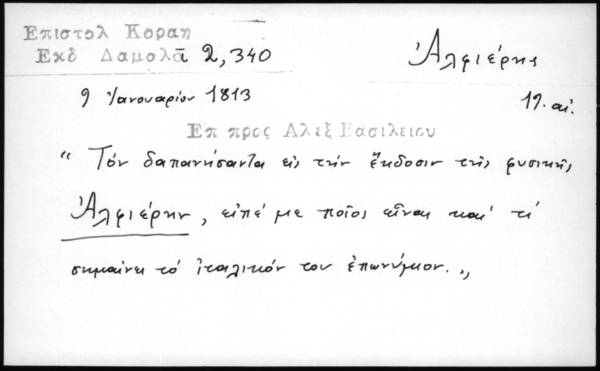 Επιστολ Κοραη
Εκδ Δαμαλᾶ 2,340
Ἀλφιέρης
9 Ἰανουαρίου 1813
19. αἰ.
Επ προς Αλεξ Βασιλειου
" Τόν δαπανήσαντα εἰς τήν ἔκδοσιν τῆς φυσικῆς
Ἀλφιέρην, εἰπέ με ποῖος εἶναι καί τί
σημαίνει τό ἰταλικόν του ἐπωνύμιον. „